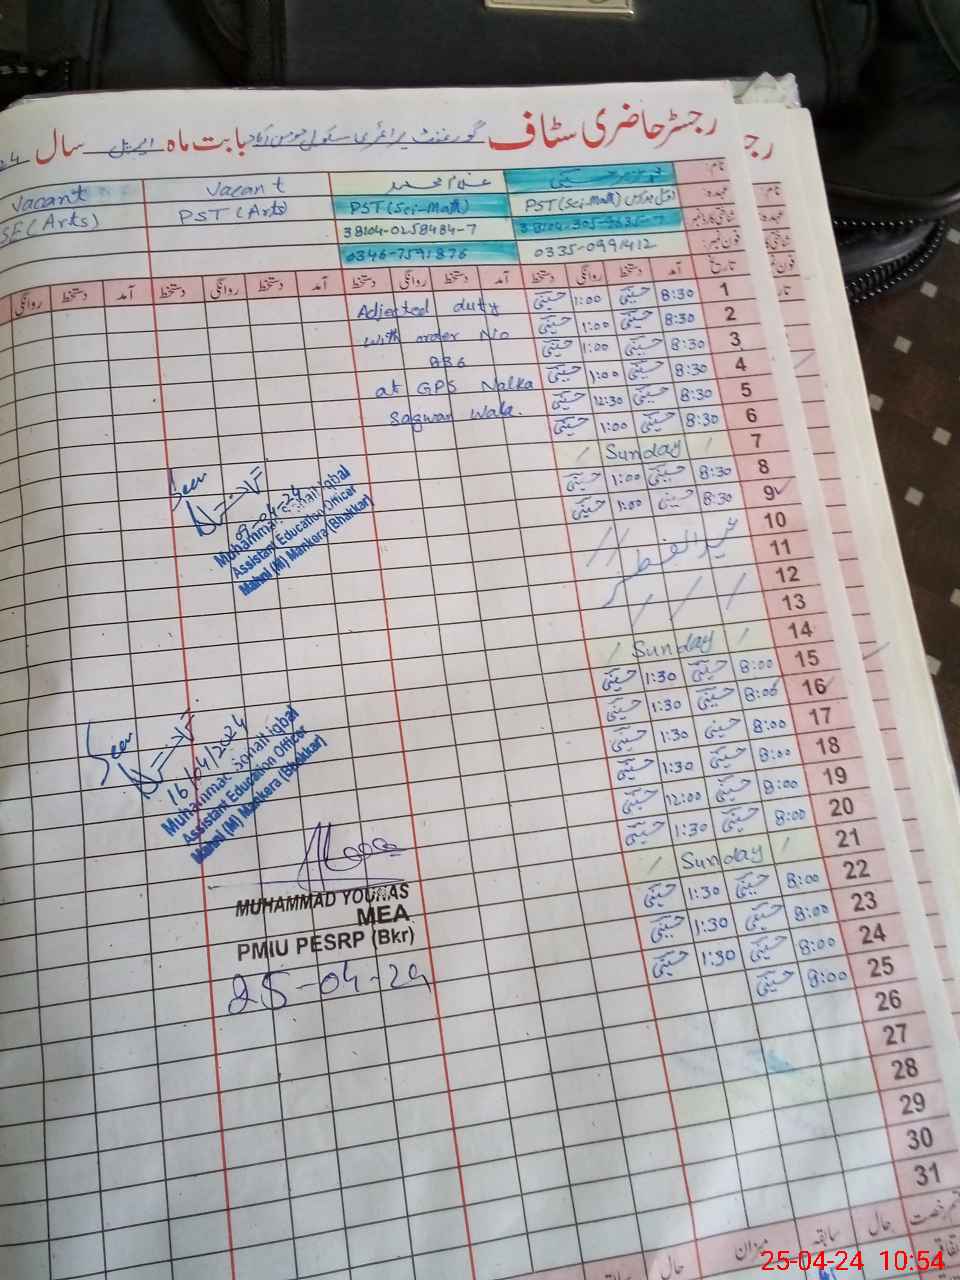 رجسٹر حاضری سٹاف گورنمنٹ پرائمری سکول بابت ماہ اپریل سال 24
نام: غلام محمد vacant vacant
عہدہ: PST (Sci-Math) PST (Sci-Math) PST (Arts) SE (Arts)
شناختی کارڈ نمبر 38104-0258484-7
فون نمبر: 0335-0991412 0346-7591876
تاریخ آمد دستخط روانگی دستخط آمد دستخط روانگی دستخط آمد دستخط روانگی دستخط آمد دستخط روانگی
1 8:30 حسینی 1:00 حسینی Adjected duty
2 8:30 حسینی 1:00 حسینی with order No
3 8:30 حسینی 1:00 حسینی 886
4 8:30 حسینی 1:00 حسینی at GPS Nalka
5 8:30 حسینی 12:30 حسینی Sagwan Wala.
6 8:30 حسینی 1:00 حسینی
7 / Sunday /
8 8:30 حسینی 1:00 حسینی
9 8:30 حسینی 1:00 حسینی
10
11 عید الفطر
12
13
14 / Sunday /
15 8:00 حسینی 1:30 حسینی
16 8:00 حسینی 1:30 حسینی
17 8:00 حسینی 1:30 حسینی
18 8:00 حسینی 1:30 حسینی
19 8:00 حسینی 12:00 حسینی
20 8:00 حسینی 1:30 حسینی
21 / Sunday /
22 8:00 حسینی 1:30 حسینی
23 8:00 حسینی 1:30 حسینی
24 8:00 حسینی 1:30 حسینی
25 8:00 حسینی
26
27
28
29
30
31
Seen
09-04-24
Muhammad Sohail Iqbal
Assistant Education Officer
Mahni (M) Mankera (Bhakkar)
Seen
16/04/2024
Muhammad Sohail Iqbal
Assistant Education Officer
Mahni (M) Mankera (Bhakkar)
MUHAMMAD YOUNAS
MEA
PMIU PESRP (Bkr)
25-04-24
قسم رخصت حال سابقہ میزان حال سابقہ
25-04-24 10:54